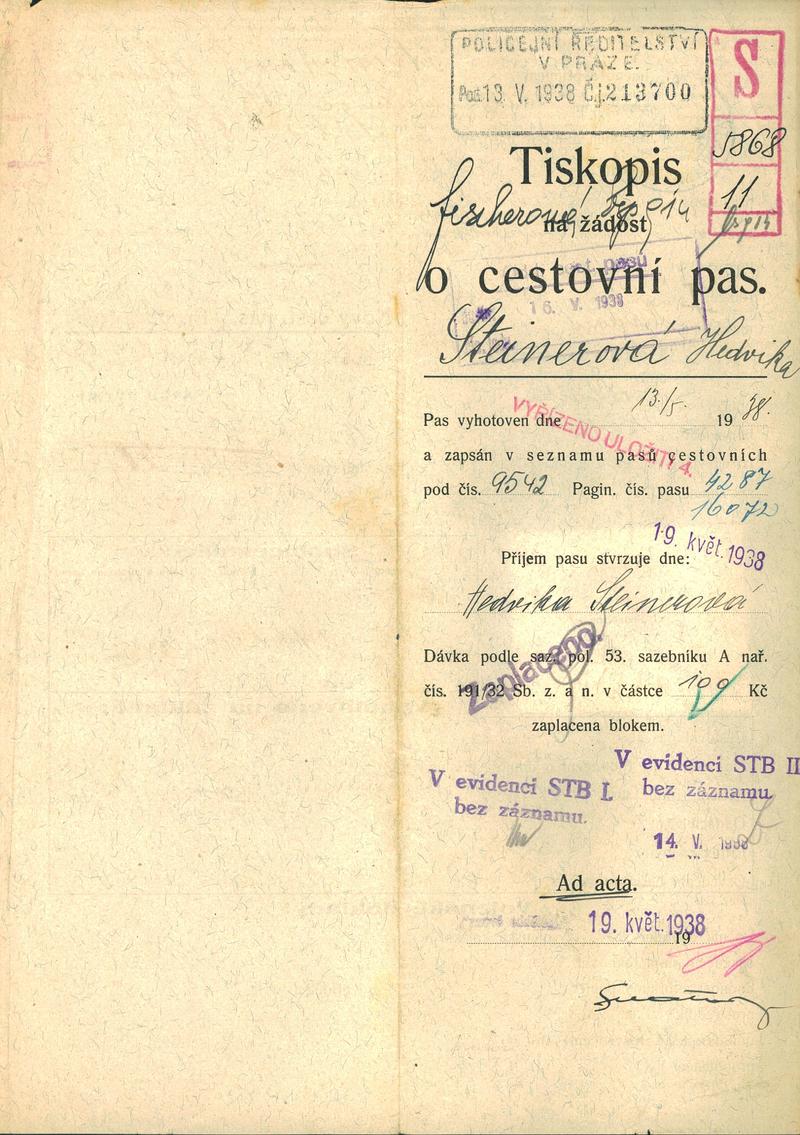 POLICEJNÍ ŘEDITELSTVÍ
V PRAZE.
Pod. 13. V. 1938 Čj. 213700
S
5868
11
Tiskopis
fischerová,
na žádost
o cestovní pas.
16. V. 1938
Steinerová Hedvika
Pas vyhotoven dne 13./5. 1938.
VYŘÍZENO ULOŽITI 4.
a zapsán v seznamu pasů cestovních
pod čís. 9542 Pagin. čís. pasu 4287
16072
19. květ. 1938
Příjem pasu stvrzuje dne:
Hedvika Steinerová
Zaplaceno.
Dávka podle saz. pol. 53. sazebníku A nař.
čís. 191/32 Sb. z. a n. v částce 100 Kč
zaplacena blokem.
V evidenci STB I.
bez záznamu.
V evidenci STB II
bez záznamu.
14. V. 1938
Ad acta.
19. květ. 1938
19